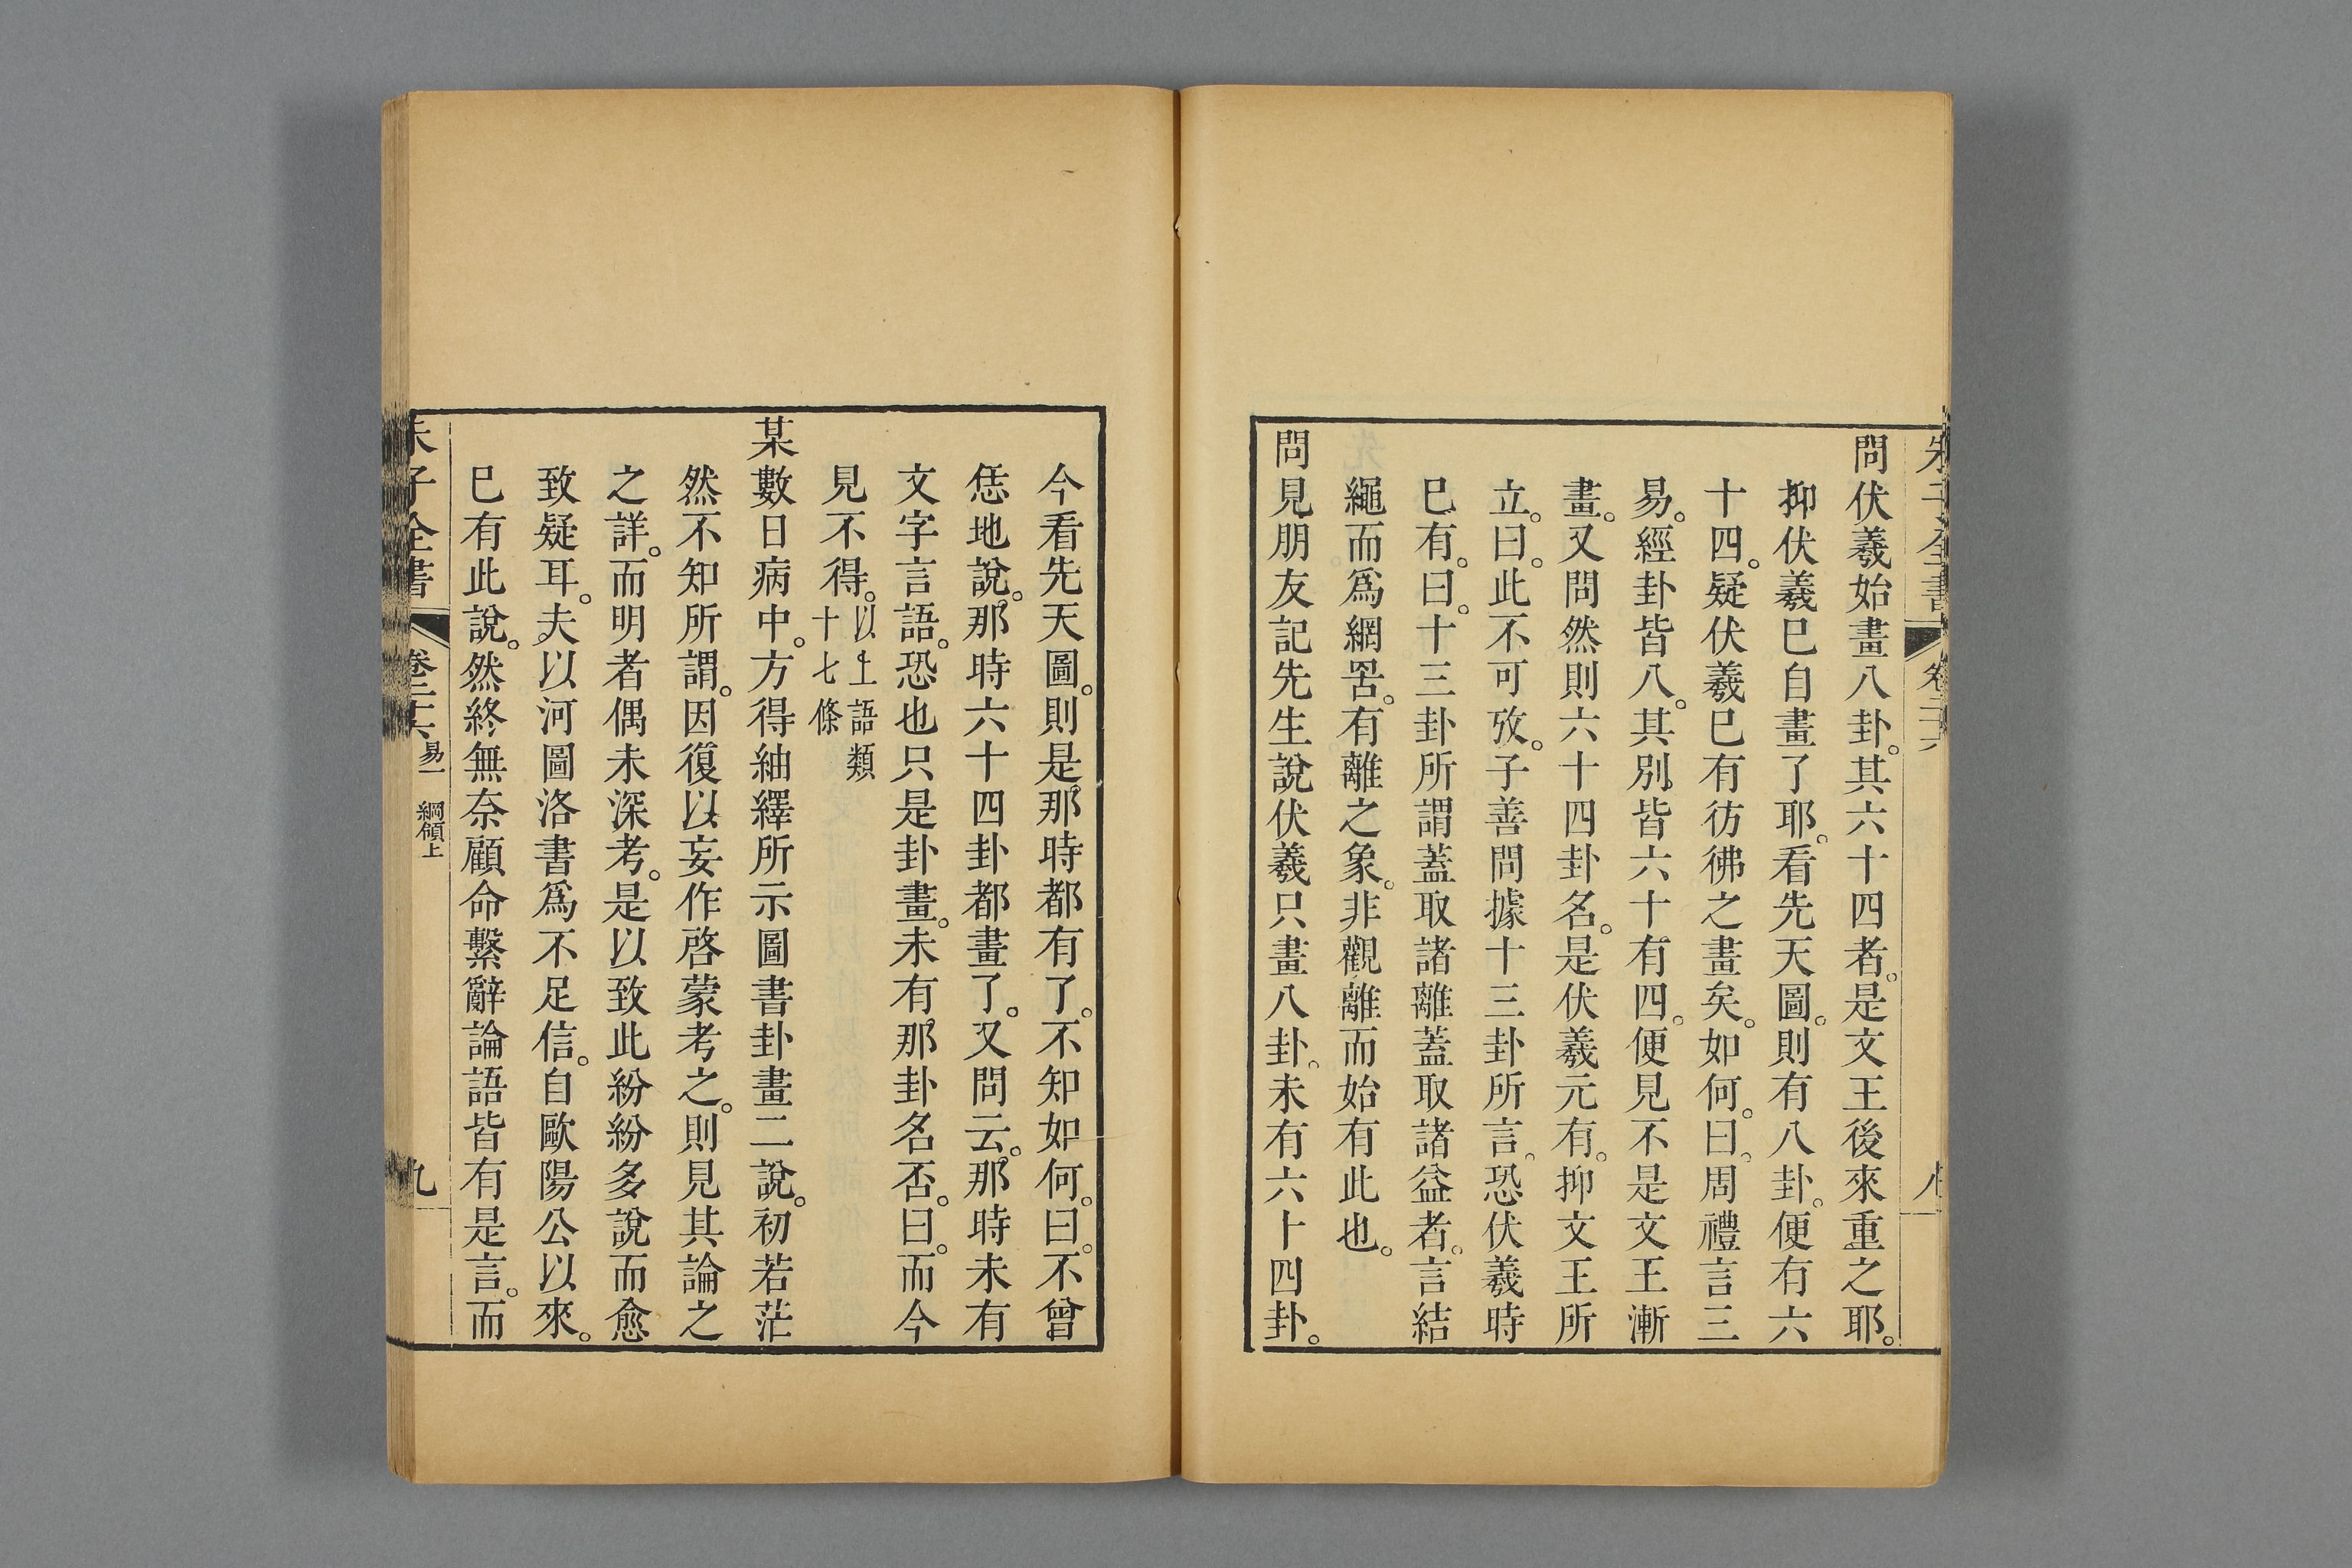 朱子全書 卷二十六 八
問伏羲始畫八卦。其六十四者。是文王後來重之耶。
抑伏羲已自畫了耶。看先天圖。則有八卦。便有六
十四。疑伏羲已有彷彿之畫矣。如何。曰。周禮言三
易。經卦皆八。其別皆六十有四。便見不是文王漸
畫。又問然則六十四卦名。是伏羲元有。抑文王所
立。曰。此不可攷。子善問據十三卦所言。恐伏羲時
已有。曰。十三卦所謂蓋取諸離蓋取諸益者。言結
繩而爲網罟。有離之象。非觀離而始有此也。
問見朋友記先生說伏羲只畫八卦。未有六十四卦。
今看先天圖。則是那時都有了。不知如何。曰。不曾
恁地說。那時六十四卦都畫了。又問云。那時未有
文字言語。恐也只是卦畫。未有那卦名否。曰。而今
見不得。以上語類十七條
某數日病中。方得紬繹所示圖書卦畫二說。初若茫
然不知所謂。因復以妄作啓蒙考之。則見其論之
之詳。而明者偶未深考。是以致此紛紛多說而愈
致疑耳。夫以河圖洛書爲不足信。自歐陽公以來。
已有此說。然終無奈顧命繫辭論語皆有是言。而
朱子全書 卷二十六 易一 綱領上 九